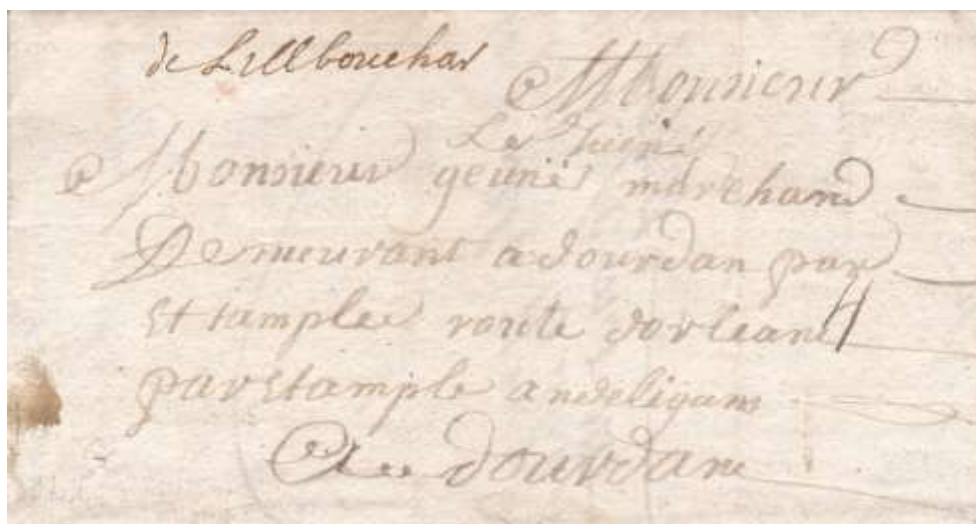 de Lillbouchar
A Monsieur
Le
Monsieur geuné marchand
Demeurant a dourdan par
Ettample route dorleant 4
par Etample andeligams
A dourdan